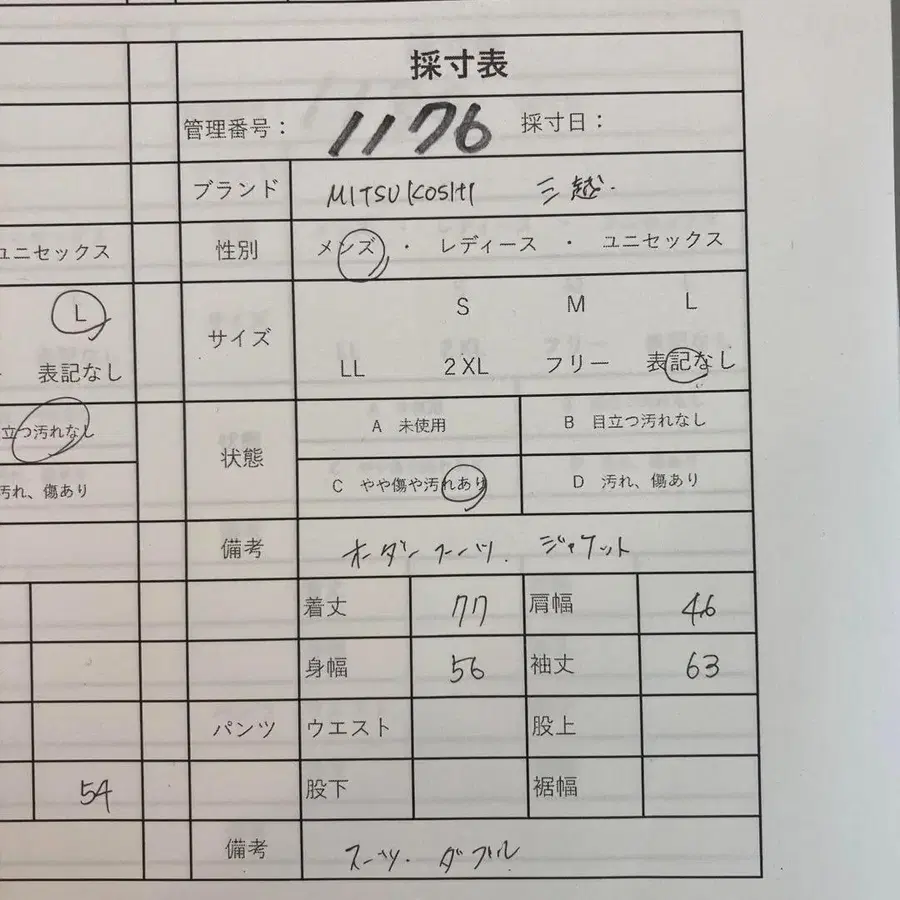 採寸表
管理番号： 1176 採寸日：
ブランド MITSUKOSHI 三越.
ユニセックス 性別 メンズ ・ レディース ・ ユニセックス
L サイズ S M L
表記なし LL 2XL フリー 表記なし
立つ汚れなし 状態 A 未使用 B 目立つ汚れなし
汚れ、傷あり C やや傷や汚れあり D 汚れ、傷あり
備考 オーダースーツ. ジャケット
着丈 77 肩幅 46
身幅 56 袖丈 63
パンツ ウエスト 股上
54 股下 裾幅
備考 スーツ. ダブル